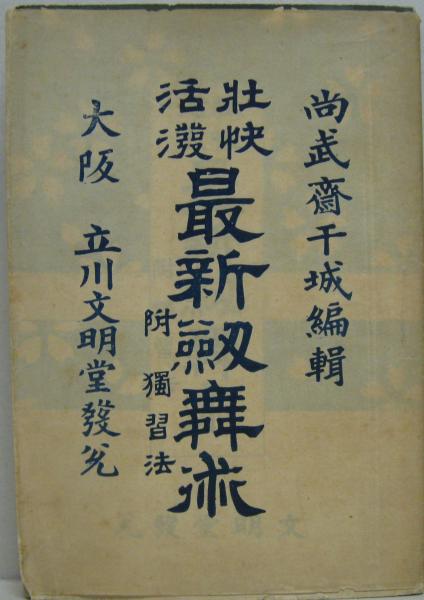 尚武齋干城編輯
壯快
活潑
最新劔舞術
附獨習法
大阪 立川文明堂發兌
文明堂發兌